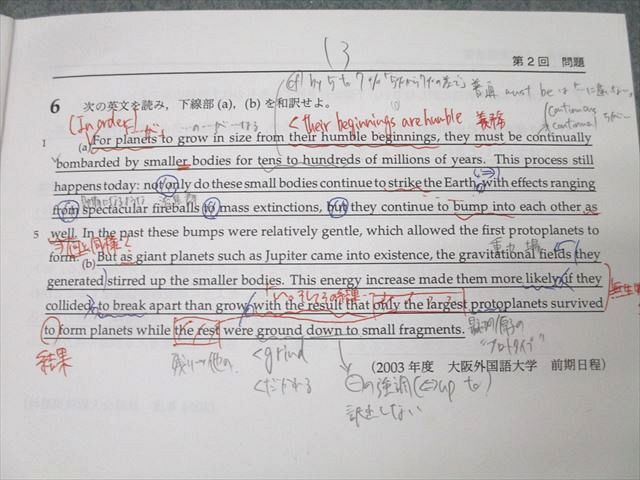 13
第2回 問題
(cf) by 5 to 7%
must be
6 次の英文を読み，下線部 (a)，(b) を和訳せよ。
(In order) < their beginnings are humble 義務
continuous
continual
1 (a) For planets to grow in size from their humble beginnings, they must be continually
bombarded by smaller bodies for tens to hundreds of millions of years. This process still
happens today: not only do these small bodies continue to strike the Earth, with effects ranging
from spectacular fireballs to mass extinctions, but they continue to bump into each other as
5 well. In the past these bumps were relatively gentle, which allowed the first protoplanets to
form. (b) But as giant planets such as Jupiter came into existence, the gravitational fields they
重力場
generated stirred up the smaller bodies. This energy increase made them more likely, if they
collided, to break apart than grow, with the result that only the largest protoplanets survived
to form planets while the rest were ground down to small fragments.
結果
残り＝他の
< grind
< くだける
の強調 (⇔ up to)
訳出しない
"プロトタイプ"
(2003年度 大阪外国語大学 前期日程)